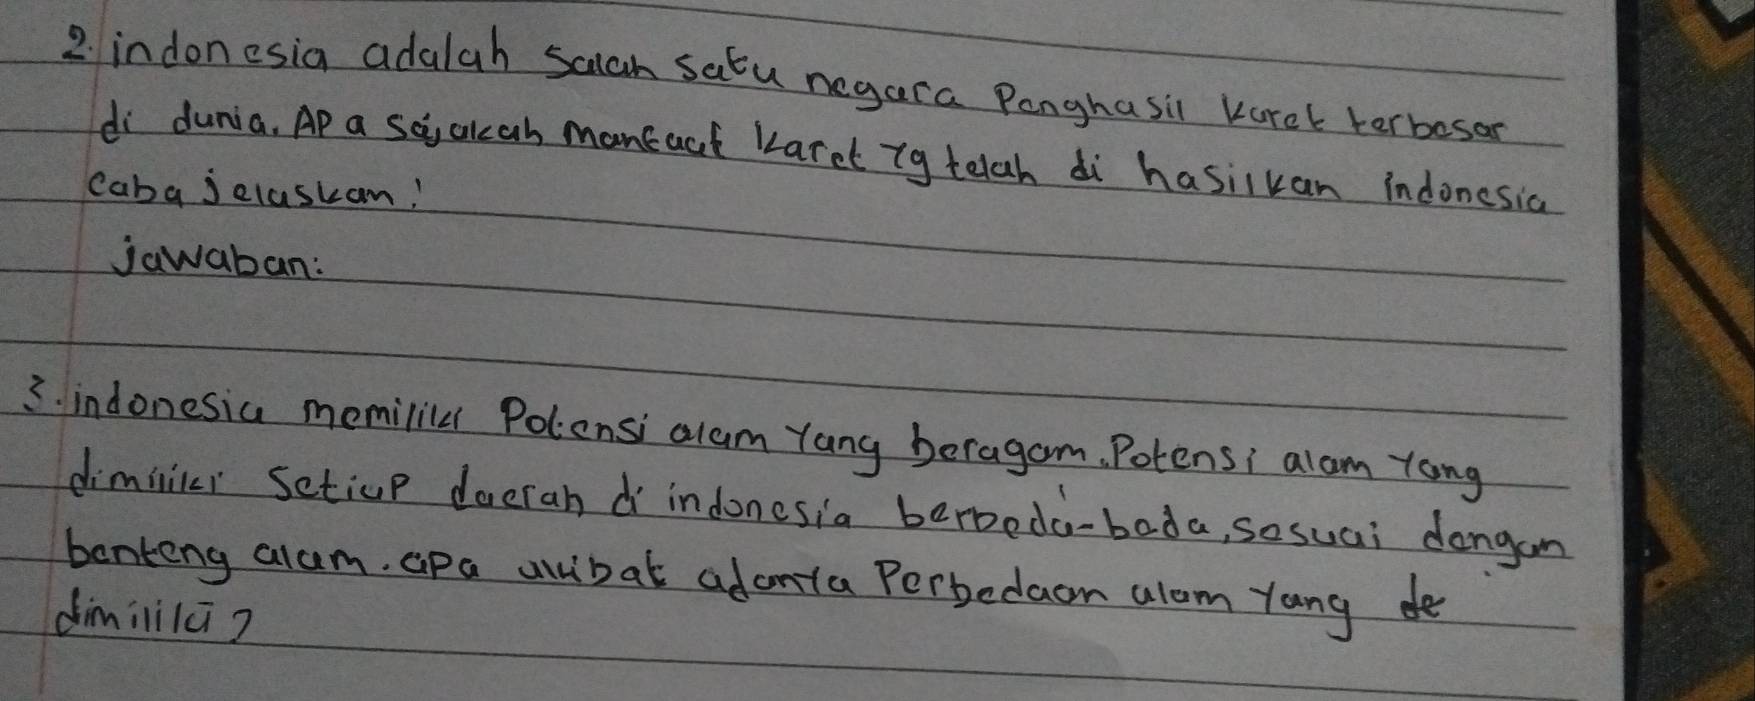 2. indonesia adalah salah satu negara Penghasil karet terbesar
di dunia. APa sajakah manfaat karet yg telah di hasilkan indonesia
caba jelaskan!
jawaban:
3. indonesia memiliki Potensi alam Yang beragam. Potensi alam Yang
dimiliki setiap daerah di indonesia berbeda-beda, sesuai dengan
benteng alam. apa akibat adanya Perbedaan alam Yang de
dimiliki?